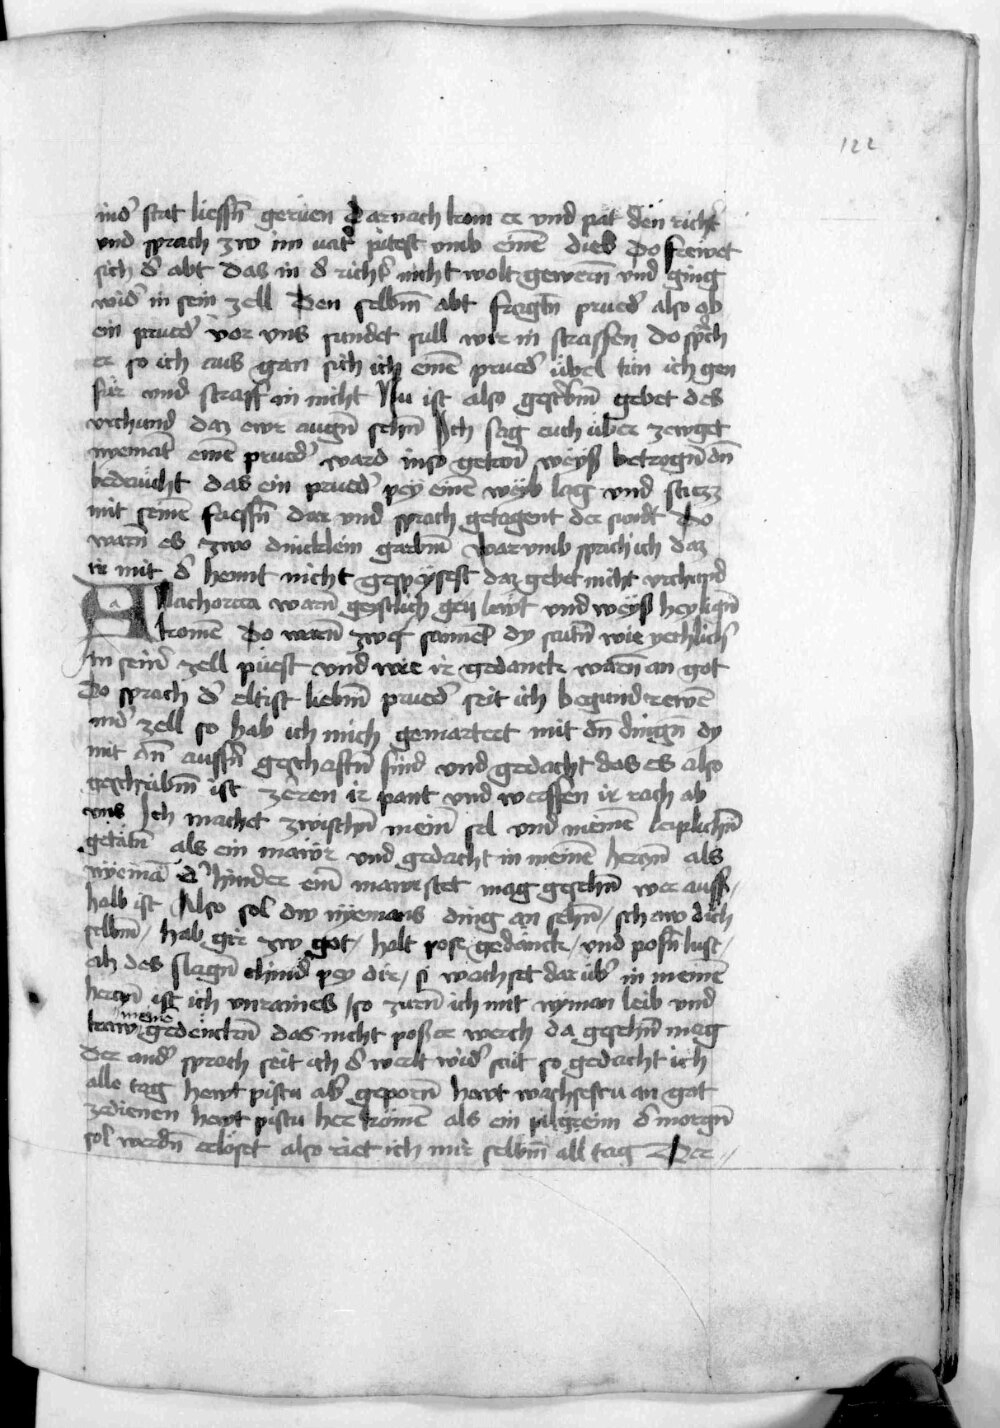 122
ind' stat liessn̄ gerüen Darnach kom er und pat den richt'
und sprach zw im uat' pitest umb einē dieb Do frewet
sich d' abt das in d' richt' nicht wolt gewern̄ und ging
wid' in sein zell Den selbm̄ abt fragtn̄ prued' also ob
ein prued' vor uns sundet sull wir in straffen Do sp'ch
er so ich aus gan sich ich einē prued' übel tün ich gen
für und straff in nicht Nu ist also geschribm̄ gebet des
urchund daz ewr augn̄ sehn̄ Ich sag euch über zewget
nyemāt einē prued' ward in so getan weyß betrogn̄ dn̄
bedeucht das ein prued' pey einē weyb lag und stiezz
mit seinē fuessn̄ dar und sprach getagent der sundt Do
warn̄ es zwo dincklein garbm̄ Warumb sprich ich daz
ir mit d' hennt nicht gespeyset daz gebet nicht urchund
Anachorita warn̄ geystlich gen lewt und weyß heylign̄
komē Do warn̄ zwen samet dy sautn̄ wie yechlich'
In sein' zell püest und wie ir gedanck warn̄ an got
Do sprach d' eltist liebm̄ prued' seit ich begund rewē
ind' zell so hab ich mich gemartert mit dn̄ dingn̄ dy
mit dn̄ aussn̄ geschäftn̄ sind und gedacht das es also
geschribm̄ ist zeren ir pant und werffen ir ioch ab
uns Ich machet zwischn̄ mein' sel und meinē leiplichn̄
getätn̄ als ein mawr und gedacht in meinē herczn̄ als
nyemā d' hinder ein' mawr stet mag gesehn̄ wer auss/
halb ist Also sol dw nyemans ding an sehn̄ / schaw dich
selbm̄ / hab gir zw got / halt pose gedänck / und posn̄ lust /
als des slagn̄ chind' pey dir / si wachset darüb' in meinē
herczn̄ ist ich unraines / so zurn̄ ich mit nyman leib und
traw meinē gedenckn̄ das nicht poßer werch da geschn̄ mag
Der and' sprach seit ich d' welt wid' sait so gedacht ich
alle tag hewt pistu ab' geporn̄ hewt wachsestu an got
zedienen hewt pistu her komē als ein pilgreim d' morgn̄
sol werdn̄ erlöset also riet ich mir selbm̄ all tag Der //